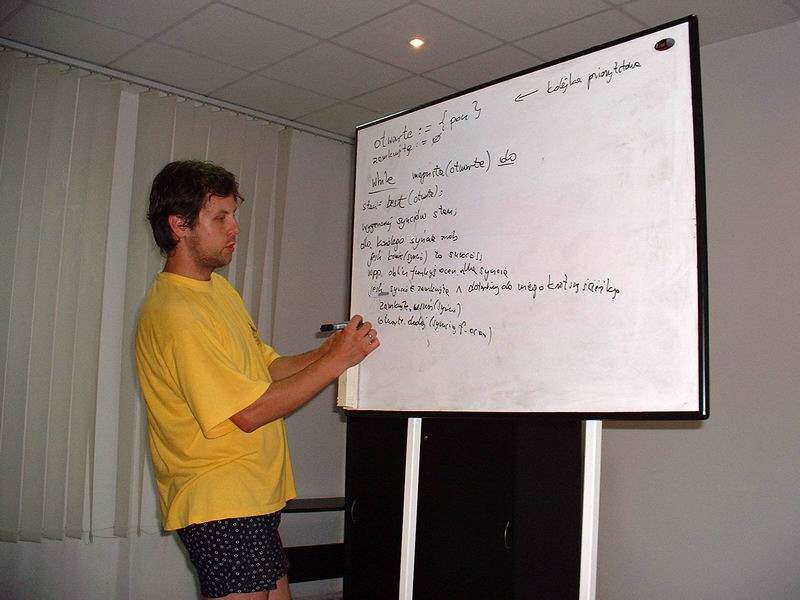 otwarte := {pocz} ← kolejka priorytetowa
zamknięte := ∅
while niepusta(otwarte) do
stan = best(otwarte);
wygeneruj synciów stan;
dla każdego syncia rób
jeśli koniec(syncio) to sukces;
wpp. oblicz funkcję ocen. dla syncia
jeśli syncio ∈ zamknięte ∧ dotarliśmy do niego krótszą ścieżką
zamknięte.usuń(syncio)
otwarte.dodaj(syncio, f-ocen)